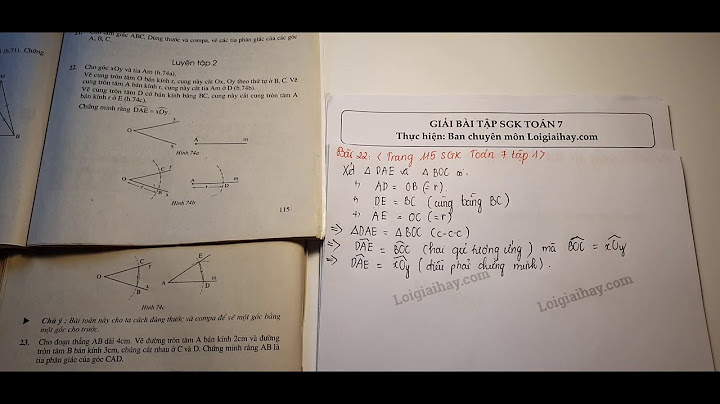 tam giác ABC. Dùng thước và compa, vẽ các tia phân giác của các góc
A, B, C.
Luyện tập 2
22. Cho góc xOy và tia Am (h.74a).
Vẽ cung tròn tâm O bán kính r, cung này cắt Ox, Oy theo thứ tự ở B, C. Vẽ
cung tròn tâm A bán kính r, cung này cắt tia Am ở D (h.74b).
Vẽ cung tròn tâm D có bán kính bằng BC, cung này cắt cung tròn tâm A
bán kính r ở E (h.74c).
Chứng minh rằng DAE = xOy.
O y x A m
Hình 74a
O C y B x r A r D m
Hình 74b
115
O C y B x A E D m
Hình 74c
► Chú ý : Bài toán này cho ta cách dùng thước và compa để vẽ một góc bằng
một góc cho trước.
23. Cho đoạn thẳng AB dài 4cm. Vẽ đường tròn tâm A bán kính 2cm và đường
tròn tâm B bán kính 3cm, chúng cắt nhau ở C và D. Chứng minh rằng AB là
tia phân giác của góc CAD.
(h.71). Chứng
B
GIẢI BÀI TẬP SGK TOÁN 7
Thực hiện: Ban chuyên môn Loigiaihay.com
Bài 22: (Trang 115 SGK Toán 7 tập 1)
Xét △ DAE và △ BOC có:
+) AD = OB (= r)
+) DE = BC (cùng bằng BC)
+) AE = OC (= r)
=> △DAE = △BOC (c-c-c)
=> DAE = BOC (hai góc tương ứng) mà BOC = xOy
=> DAE = xOy (điều phải chứng minh).
Loigiaihay.com
Loigiaihay.com